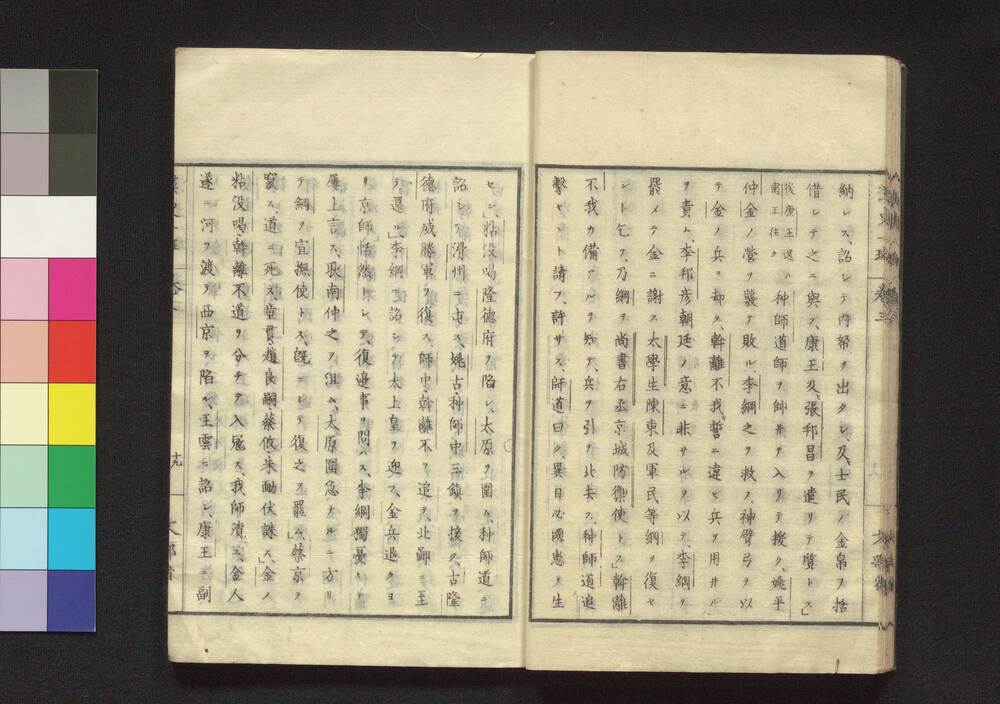 納レス、詔シテ内帑ヲ出タシ、及士民ノ金帛ヲ括
借シテ之ニ與フ、康王及張邦昌ヲ遣リテ質トス」
後康王還ル
肅王往ク
种師道師ヲ帥井テ入リテ援ク、姚平
仲金ノ營ヲ襲テ敗ル、李綱之ヲ救フ、神臂弓ヲ以
テ金ノ兵ヲ却ク、斡離不我誓ニ違ヒ兵ヲ用井ル
ヲ責ム、李邦彦朝廷ノ意ニ非サルヲ以テ、李綱ヲ
罷メテ金ニ謝ス太學生陳東及軍民等綱ヲ復セ
ント乞フ、乃綱ヲ尚書右丞京城防禦使トス」斡離
不我カ備アルヲ知テ、兵ヲ引テ北去ス、种師道追
擊セント請フ、許サス、師道曰ク、異日必國患ヲ生
セン」粘没喝隆德府ヲ陷レ、太原ヲ圍ム、种師道ニ
詔シテ滑州ニ屯ス、姚古种師中三鎮ヲ援ク、古隆
德府威勝軍ヲ復ス、師中斡離不ヲ追テ、北鄙ニ至
テ還ル」李綱ニ詔シテ太上皇ヲ迎フ、金兵退クヨ
リ京師恬然トシテ、復邊事ヲ問ハス、李綱獨憂ヒ
屢上言ス、耿南仲之ヲ沮ム、太原圍急ナルニ方リ
テ綱ヲ宣撫使トス、既ニシテ復之ヲ罷ム」蔡京ヲ
竄ス道ニ死ス、童貫趙良嗣蔡攸朱勔伏誅ス」金ノ
粘没喝斡離不道ヲ分チテ入冦ス、我師潰ユ、金人
遂ニ河ヲ渡ヲ西京ヲ陷ル、王雲ニ詔シ、康王ニ副
十九